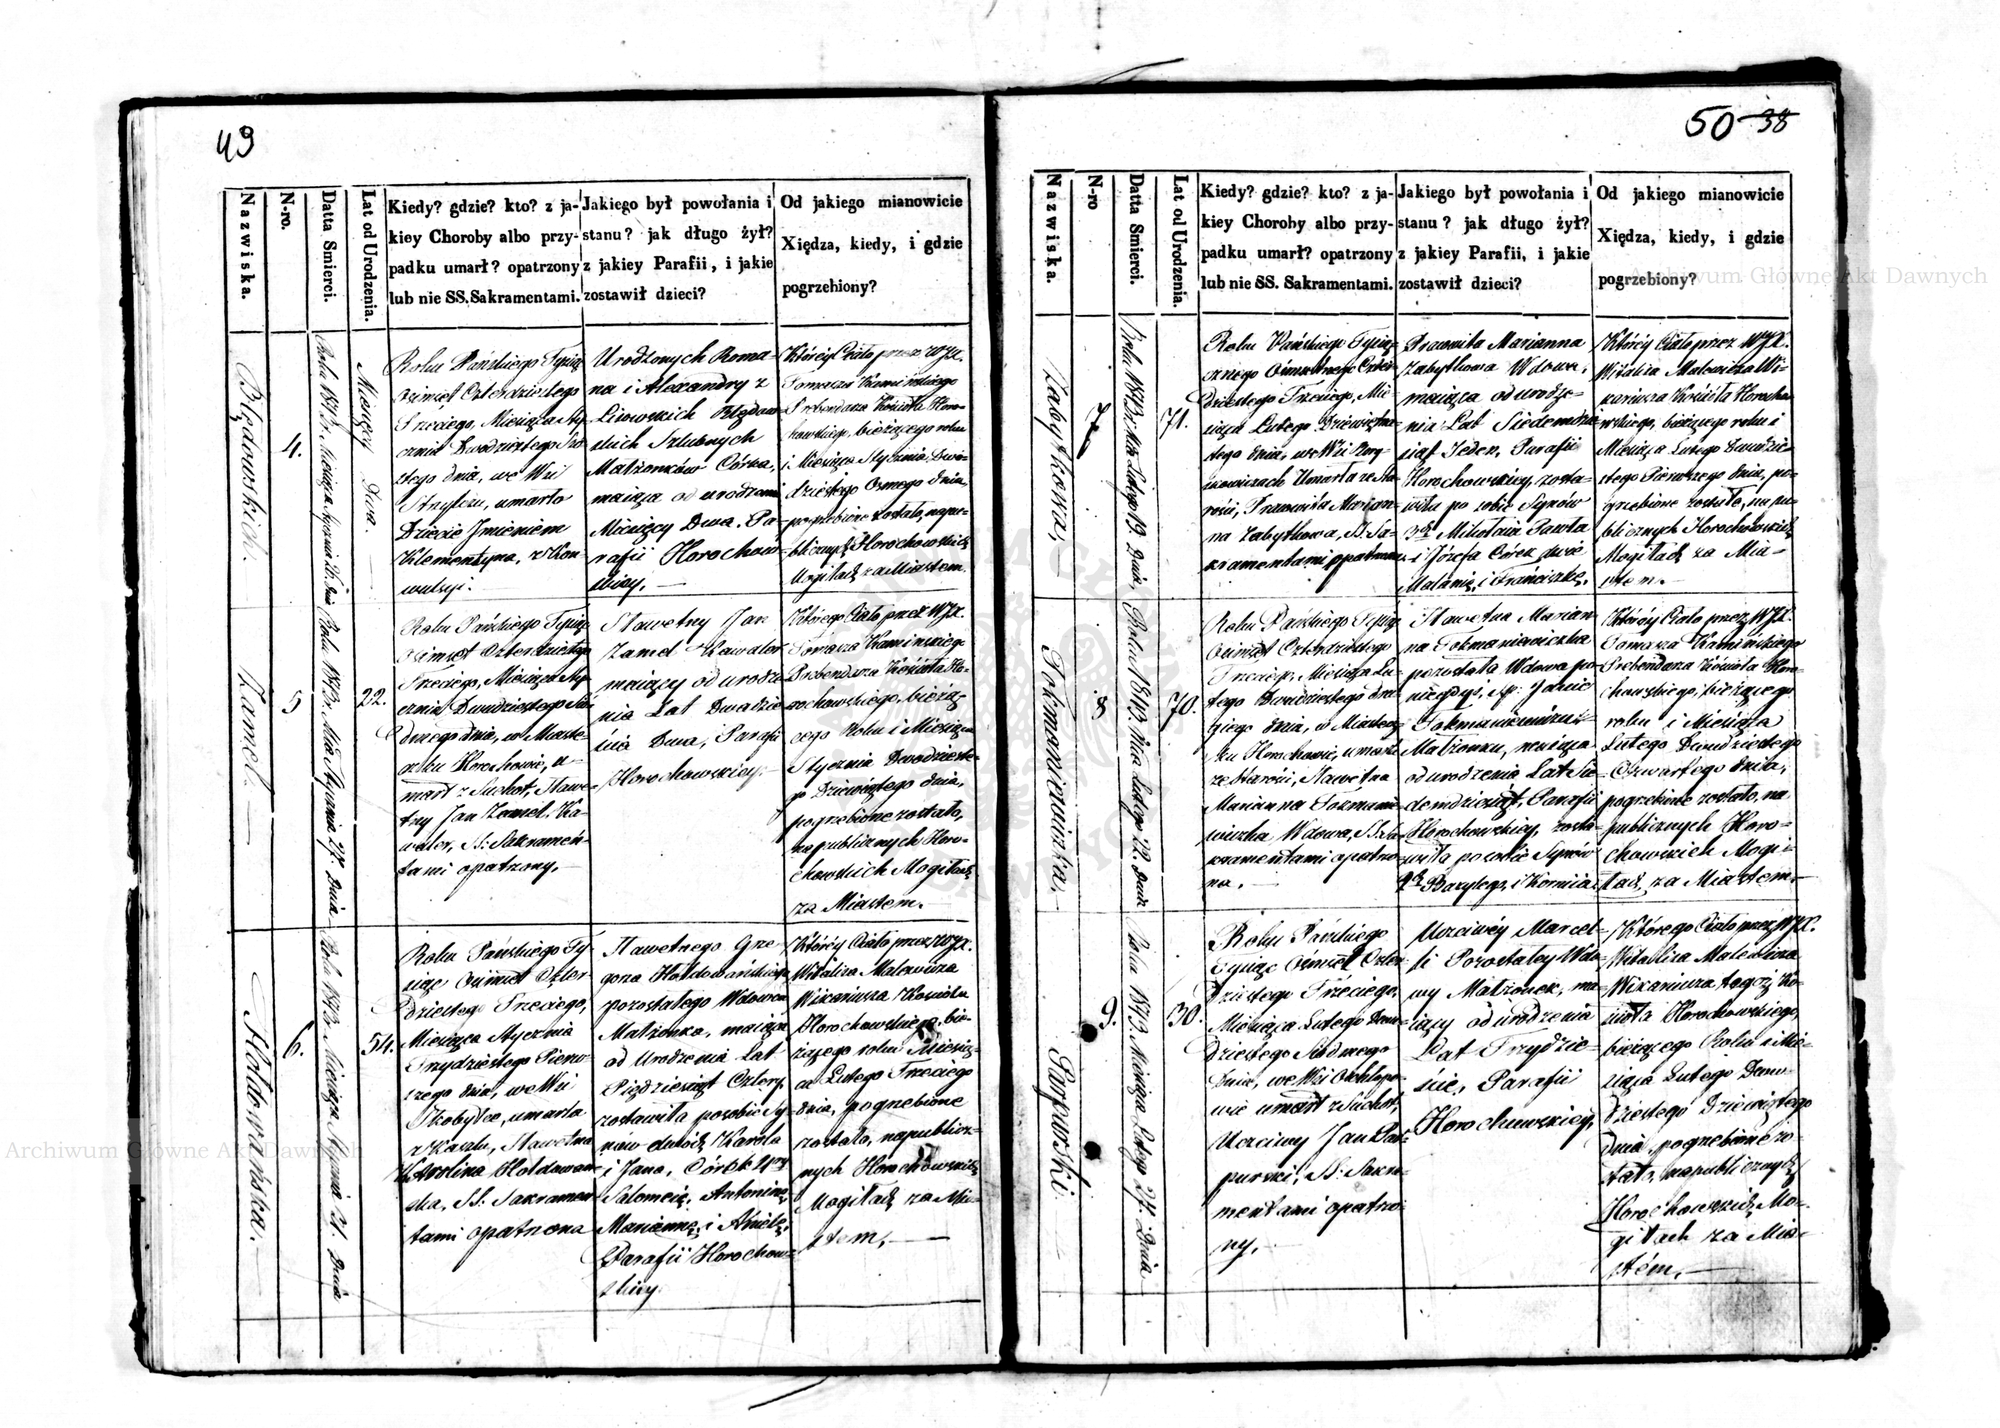 49
Nazwiska.
N-ro.
Datta Smierci.
Lat od Urodzenia.
Kiedy? gdzie? kto? z ja-
kiey Choroby albo przy-
padku umarł? opatrzony
lub nie SS. Sakramentami.
Jakiego był powołania i
stanu? jak długo żył?
z jakiey Parafii, i jakie
zostawił dzieci?
Od jakiego mianowicie
Xiędza, kiedy, i gdzie
pogrzebiony?
Błędowskich.
4.
Roku 1843. Miesiąca Stycznia 26. dnia
Miesięcy Dwa.
Roku Pańskiego Tysiąc
Osimset Czterdziestego
Trzeciego, Miesiąca Sty
cznia Dwudziestego Szó
stego dnia, we Wsi
umarło
Dziecie Jmieniem
Klementyna, z Kon
wulsyi.
Urodzonych Roma-
na i Alexandry z
Lisowskich Błędow
skich Szlubnych
Małżonków Córka,
maiąca od urodzenia
Miesięcy Dwa. Pa-
rafii Horochow-
skiey.
Któréy Ciało przez WJX.
Tomasza Kamińskiego
Prebendarza Kościoła Horo-
chowskiego, bieżącego roku
i Miesiąca Stycznia Dwu-
dziestego Osmego dnia,
pogrzebione zostało, na pu-
blicznych Horochowskich
Mogiłach za Miastem.
Zamel.
5
Roku 1843. Mca Stycznia 27. Dnia
22.
Roku Pańskiego Tysiąc
Osimset Czterdziestego
Trzeciego, Miesiąca Sty
cznia Dwudziestego Sió
dmego dnia, w Miaste-
czku Horochowie, u-
marł z Suchot, Sławe-
tny Jan Zamel Ka-
waler, SS: Sakramen-
tami opatrzony.
Sławetny Jan
Zamel Kawaler
maiący od urodze
nia Lat Dwadzie
ścia Dwa, Parafii
Horochowskiey.
Którego Ciało przez WJX.
Tomasza Kamińskiego
Prebendarza Kościoła Ho-
rochowskiego, bieżą-
cego Roku i Miesiąca
Stycznia Dwudzieste-
go Dziewiątego dnia,
pogrzebione zostało,
na publicznych Horo-
chowskich Mogiłach
za Miastem.
Hołdowańska.
6.
Roku 1843. Miesiąca Stycznia 31. Dnia
54.
Roku Pańskiego Ty-
siąc Osimset Czter
dziestego Trzeciego,
Miesiąca Stycznia
Trzydziestego Pierw-
szego dnia, we Wsi
Skobyłce, umarła
z Kaszlu, Sławetna
Karolina Hołdowań-
ska, SS: Sakramen
tami opatrzona
Sławetnego Grze
gorza Hołdowańskiego
pozostałego Wdowca
Małżonka, maiąca
od Urodzenia Lat
Pięćdziesiąt Cztery,
zostawiła po sobie Sy
nów dwóch Karola
i Jana, Córek 4ry
Salomeię, Antoninę,
Mariannę, i Anielę,
Parafii Horochow-
skiey.
Któréy Ciało przez WJX.
Witalisa Malewicza
Wikariusza Kościoła
Horochowskiego, bie-
żącego roku Miesią-
ca Lutego Trzeciego
dnia, pogrzebione
zostało, na publicz-
nych Horochowskich
Mogiłach za Mia-
stem.
50 38
Nazwiska.
N-ro
Datta Smierci.
Lat od Urodzenia.
Kiedy? gdzie? kto? z ja-
kiey Choroby albo przy-
padku umarł? opatrzony
lub nie SS. Sakramentami.
Jakiego był powołania i
stanu? jak długo żył?
z jakiey Parafii, i jakie
zostawił dzieci?
Od jakiego mianowicie
Xiędza, kiedy, i gdzie
pogrzebiony?
Zabytkowa,
7
Roku 1843. Mca Lutego 19. Dnia
71.
Roku Pańskiego Tysią
cznego Osimsetnego Czter
dziestego Trzeciego, Mie
siąca Lutego Dziewiętna
stego dnia, we Wsi
Umarła ze Sta
rości, Pracowita Marian-
na Zabytkowa, SS. Sa-
kramentami opatrzona
Pracowita Marianna
Zabytkowa Wdowa,
maiąca od urodze-
nia Lat Siedemdzie
siąt Jeden, Parafii
Horochowskiey, zosta-
wiła po sobie Synów
3ch Mikołaia Pawła
i Józefa Córek dwie
Malanię, i Franciszkę.
Któréy Ciało przez WJX.
Witalisa Malewicza Wi-
kariusza Kościoła Horocho
wskiego, bieżącego roku i
Miesiąca Lutego Dwudzie-
stego Pierwszego dnia, po-
grzebione zostało, na pu-
blicznych Horochowskich
Mogiłach za Mia-
stem.
Tokmaniewiczka.
8
Roku 1843. Mca Lutego 22. Dnia
70.
Roku Pańskiego Tysiąc
Osimset Czterdziestego
Trzeciego, Miesiąca Lu-
tego Dwudziestego dru
giego dnia, w Miastecz
ku Horochowie, umarła
ze Starości, Sławetna
Marianna Tokmanie
wiczka Wdowa, SS. Sa-
kramentami opatrzo-
na.
Sławetna Marian-
na Tokmaniewiczka
pozostała Wdowa po
niegdyś, śp: Janie
Tokmaniewiczu
Małżonku, maiąca
od urodzenia Lat Sie-
demdziesiąt, Parafii
Horochowskiey, zosta-
wiła po sobie Synów
2ch Bazylego, i Kornila.
Któréy Ciało przez WJX.
Tomasza Kamińskiego
Prebendarza Kościoła Horo-
chowskiego, bieżącego
roku i Miesiąca
Lutego Dwudziestego
Czwartego dnia,
pogrzebione zostało, na
publicznych Horo-
chowskich Mogi-
łach, za Miastem.
Papurski.
9.
Roku 1843. Miesiąca Lutego 27. Dnia
30.
Roku Pańskiego
Tysiąc Osimset Czter
dziestego Trzeciego,
Miesiąca Lutego Dwu
dziestego Siódmego
Dnia, we Wsi
umarł z Suchot,
Uczciwy Jan Pa-
purski, SS: Sakra-
mentami opatrzo
ny.
Uczciwéy Marcel-
li Pozostałey Wdo-
wy Małżonek, ma-
iący od urodzenia
Lat Trzydzie-
ście, Parafii
Horochowskiey,
Którego Ciało przez WJX.
Witalisa Malewicza
Wikariusza tegoż Ko-
ścioła Horochowskiego,
bieżącego Roku i Mie-
siąca Lutego Dwu-
dziestego Dziewiątego
dnia, pogrzebione zo-
stało, na publicznych
Horochowskich Mo-
giłach za Mia-
stém.
Archiwum Główne Akt Dawnych
Archiwum Główne Akt Dawnych